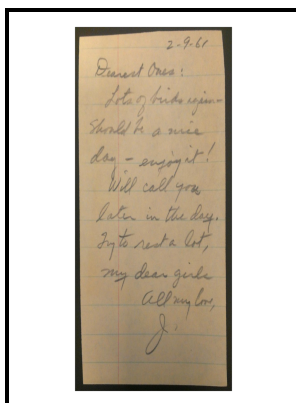 2-9-61
Dearest Ones:
Lots of birds again—
Should be a nice
day – enjoy it!
Will call you
later in the day.
Try to rest a lot,
my dear girls
All my love,
J.